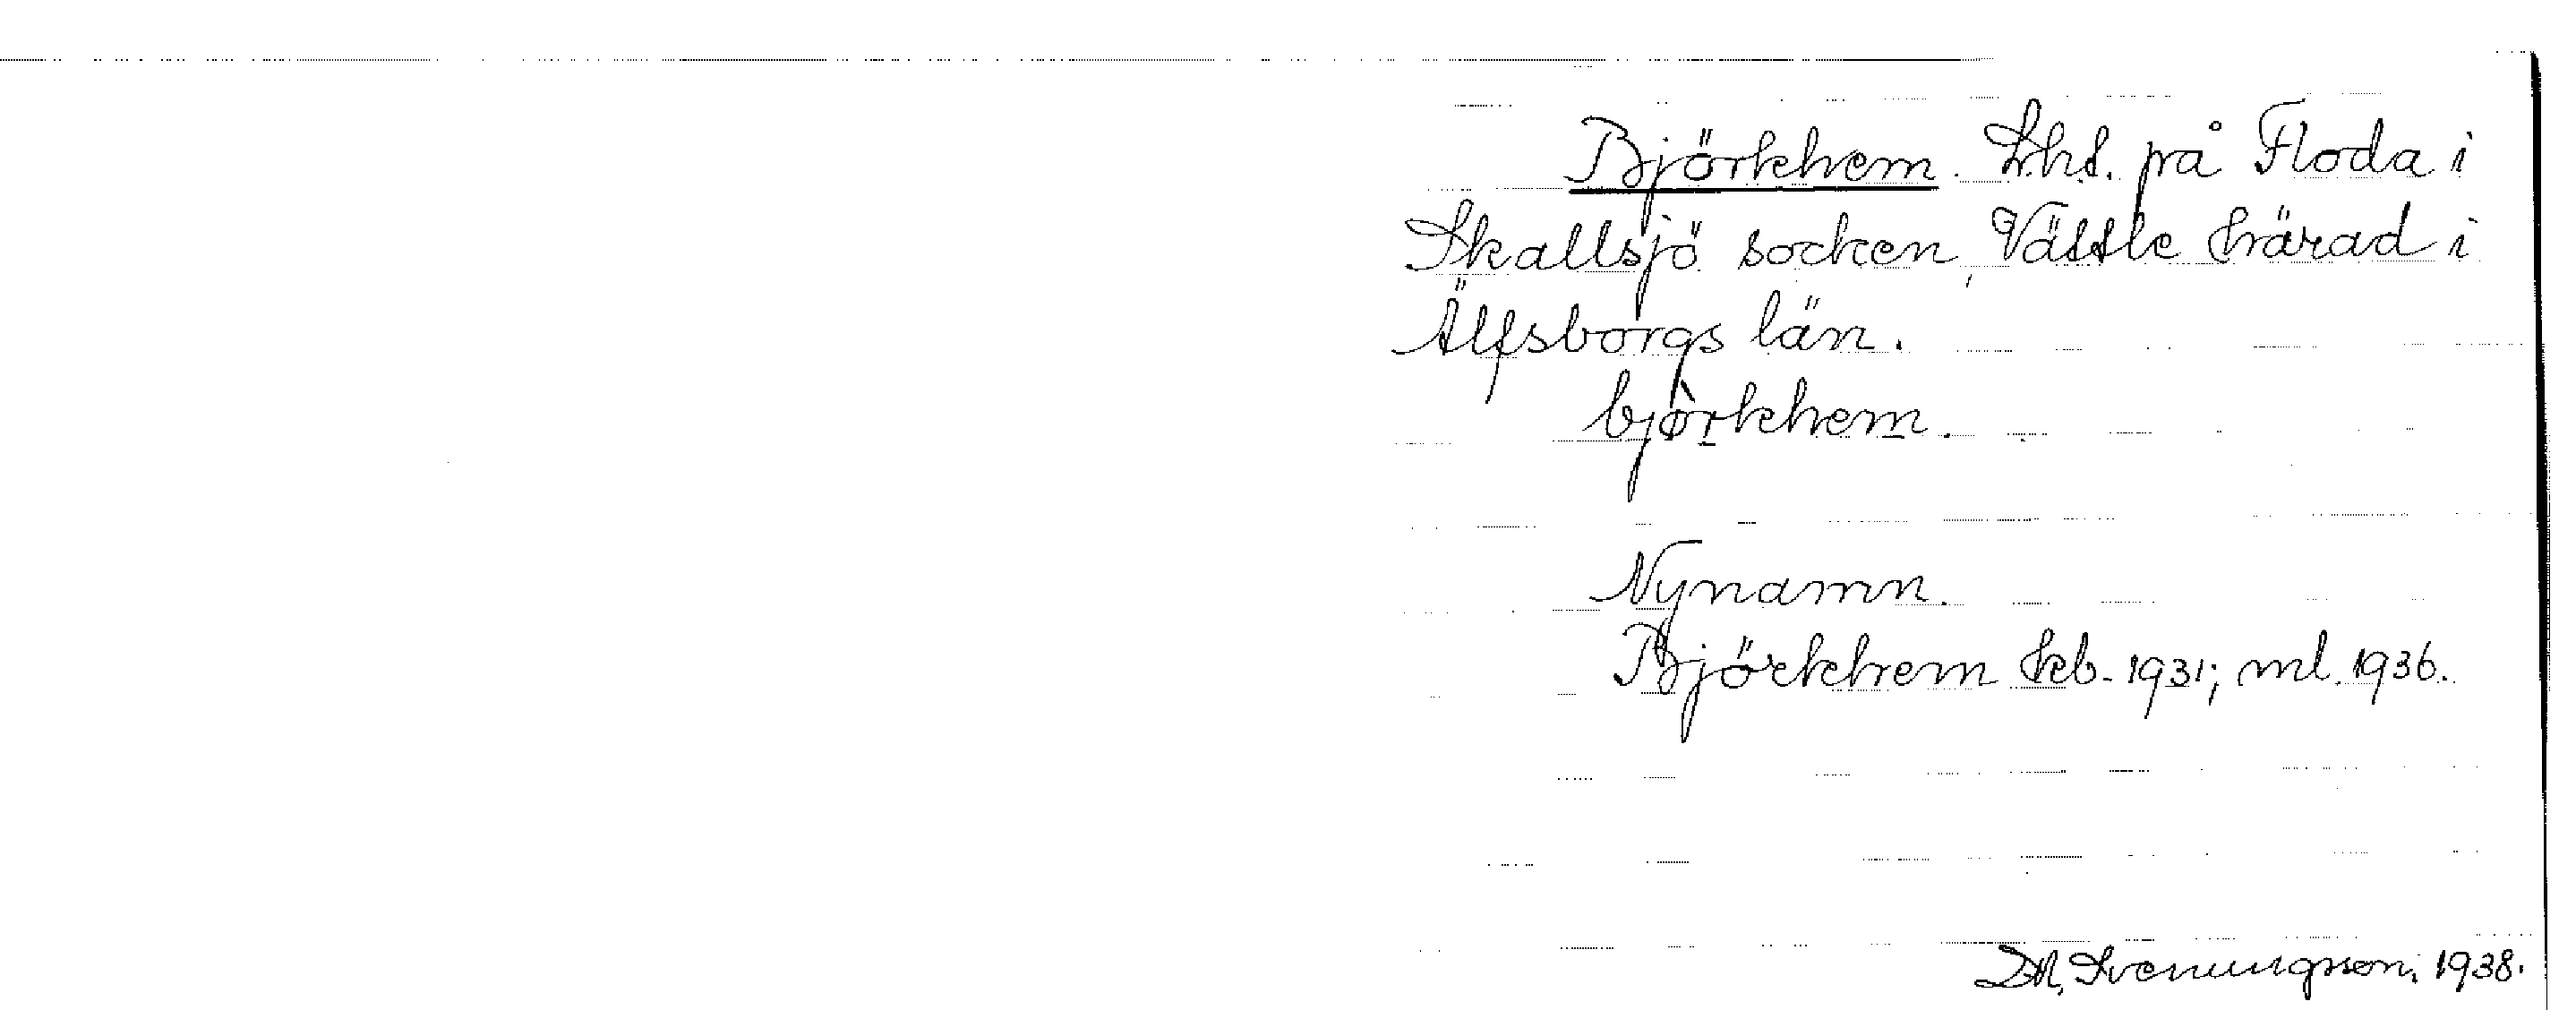 Björkhem. Lht. på Floda i
Skallsjö socken, Vättle härad i
Älfsborgs län.
bjòrkhem.
Nynamn.
Björkhem kb. 1931; ml. 1936.
Svenungsson. 1938.